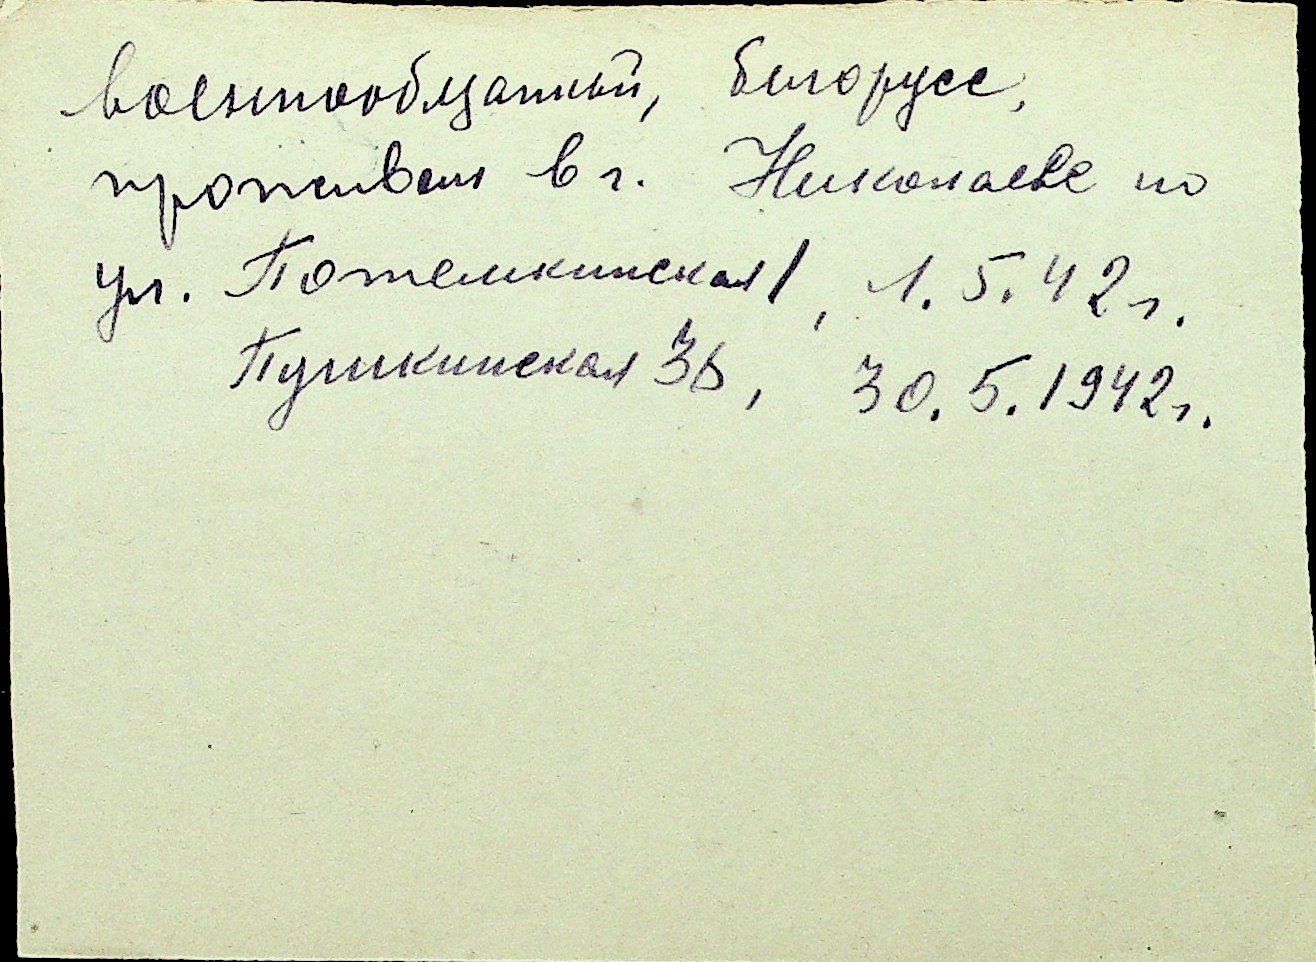 военнообязанный, белорусс,
проживал в г. Николаеве по
ул. Потемкинская 1, 1.5.42 г.
Пушкинская 36, 30.5.1942 г.